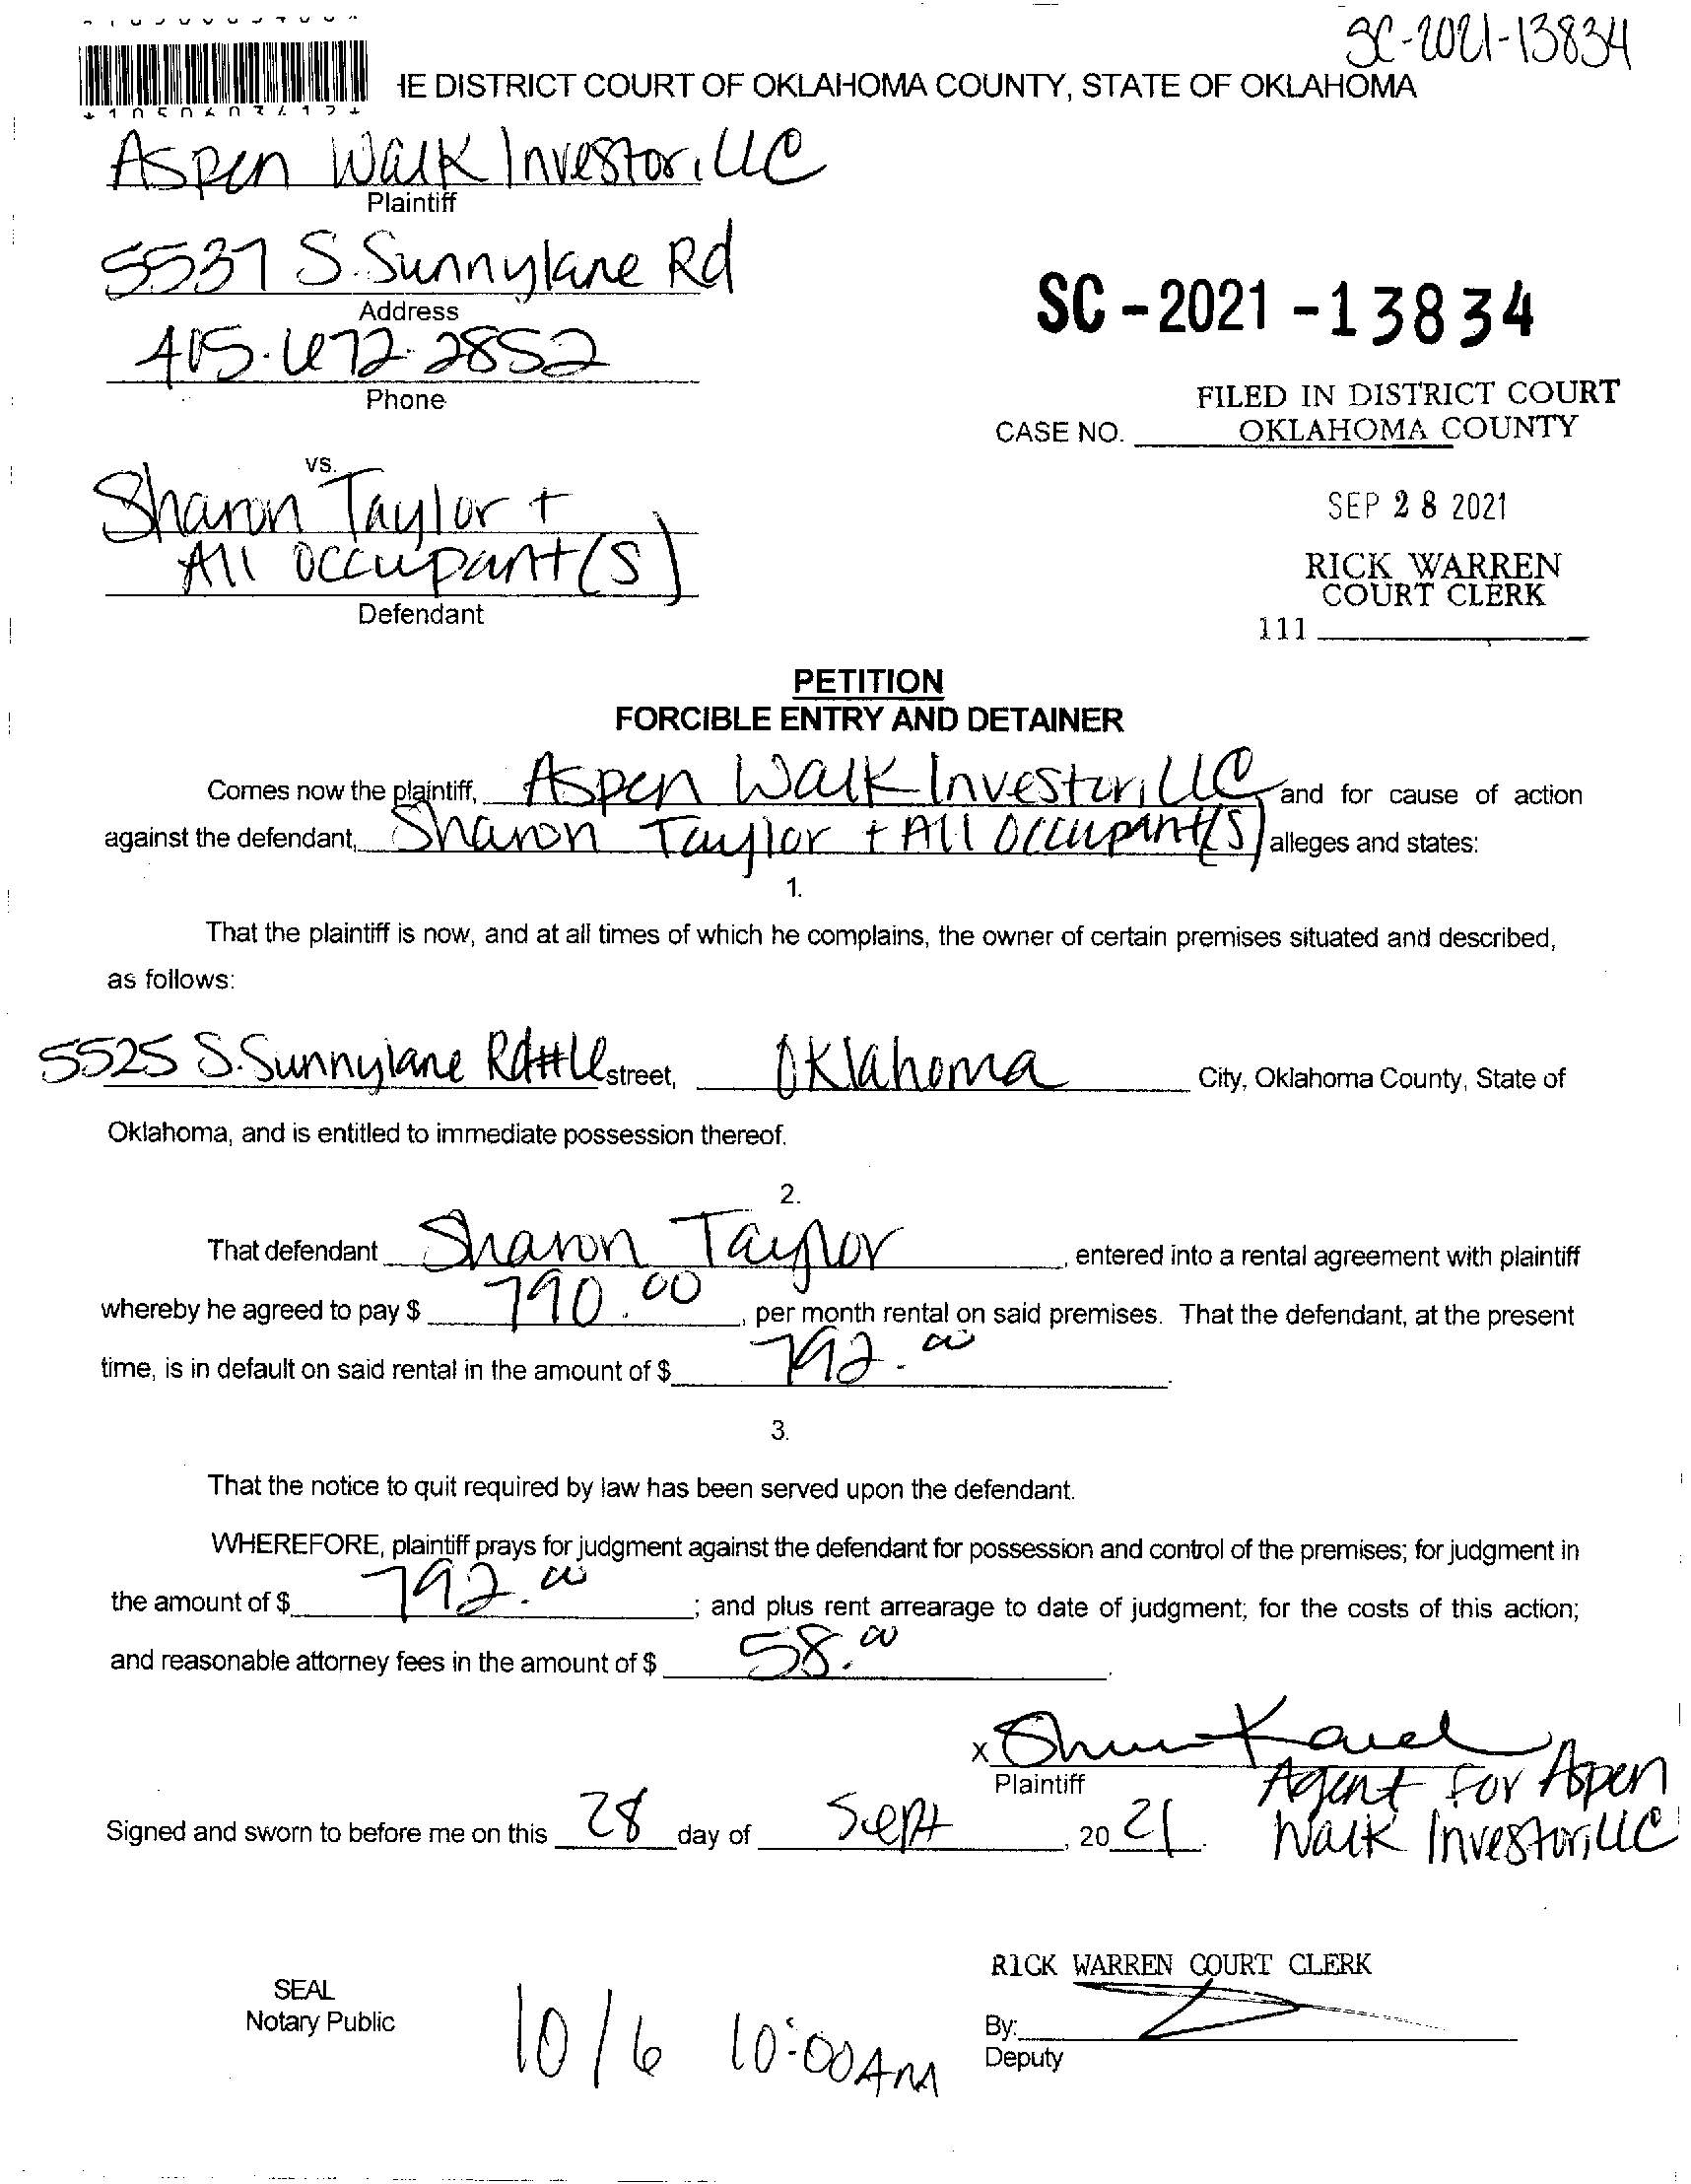 SC-2021-13834
IE DISTRICT COURT OF OKLAHOMA COUNTY, STATE OF OKLAHOMA
Aspen Walk Investor, LLC
Plaintiff
5537 S. Sunnylane Rd
Address
405.672.2852
Phone
SC-2021-13834
FILED IN DISTRICT COURT
CASE NO. OKLAHOMA COUNTY
SEP 28 2021
RICK WARREN
COURT CLERK
111
vs.
Sharon Taylor +
All Occupant(s)
Defendant
PETITION
FORCIBLE ENTRY AND DETAINER
Comes now the plaintiff, Aspen Walk Investor, LLC and for cause of action
against the defendant, Sharon Taylor + All Occupant(s) alleges and states:
1.
That the plaintiff is now, and at all times of which he complains, the owner of certain premises situated and described,
as follows:
5525 S. Sunnylane Rd #6 street, Oklahoma City, Oklahoma County, State of
Oklahoma, and is entitled to immediate possession thereof.
2.
That defendant Sharon Taylor, entered into a rental agreement with plaintiff
whereby he agreed to pay $ 790.00, per month rental on said premises. That the defendant, at the present
time, is in default on said rental in the amount of $ 792.00.
3.
That the notice to quit required by law has been served upon the defendant.
WHEREFORE, plaintiff prays for judgment against the defendant for possession and control of the premises; for judgment in
the amount of $ 792.00; and plus rent arrearage to date of judgment; for the costs of this action;
and reasonable attorney fees in the amount of $ 58.00.
x
Plaintiff
Agent for Aspen
Walk Investor, LLC
Signed and sworn to before me on this 28 day of Sept, 2021.
RICK WARREN COURT CLERK
SEAL
Notary Public
10/6 10:00AM
By:
Deputy